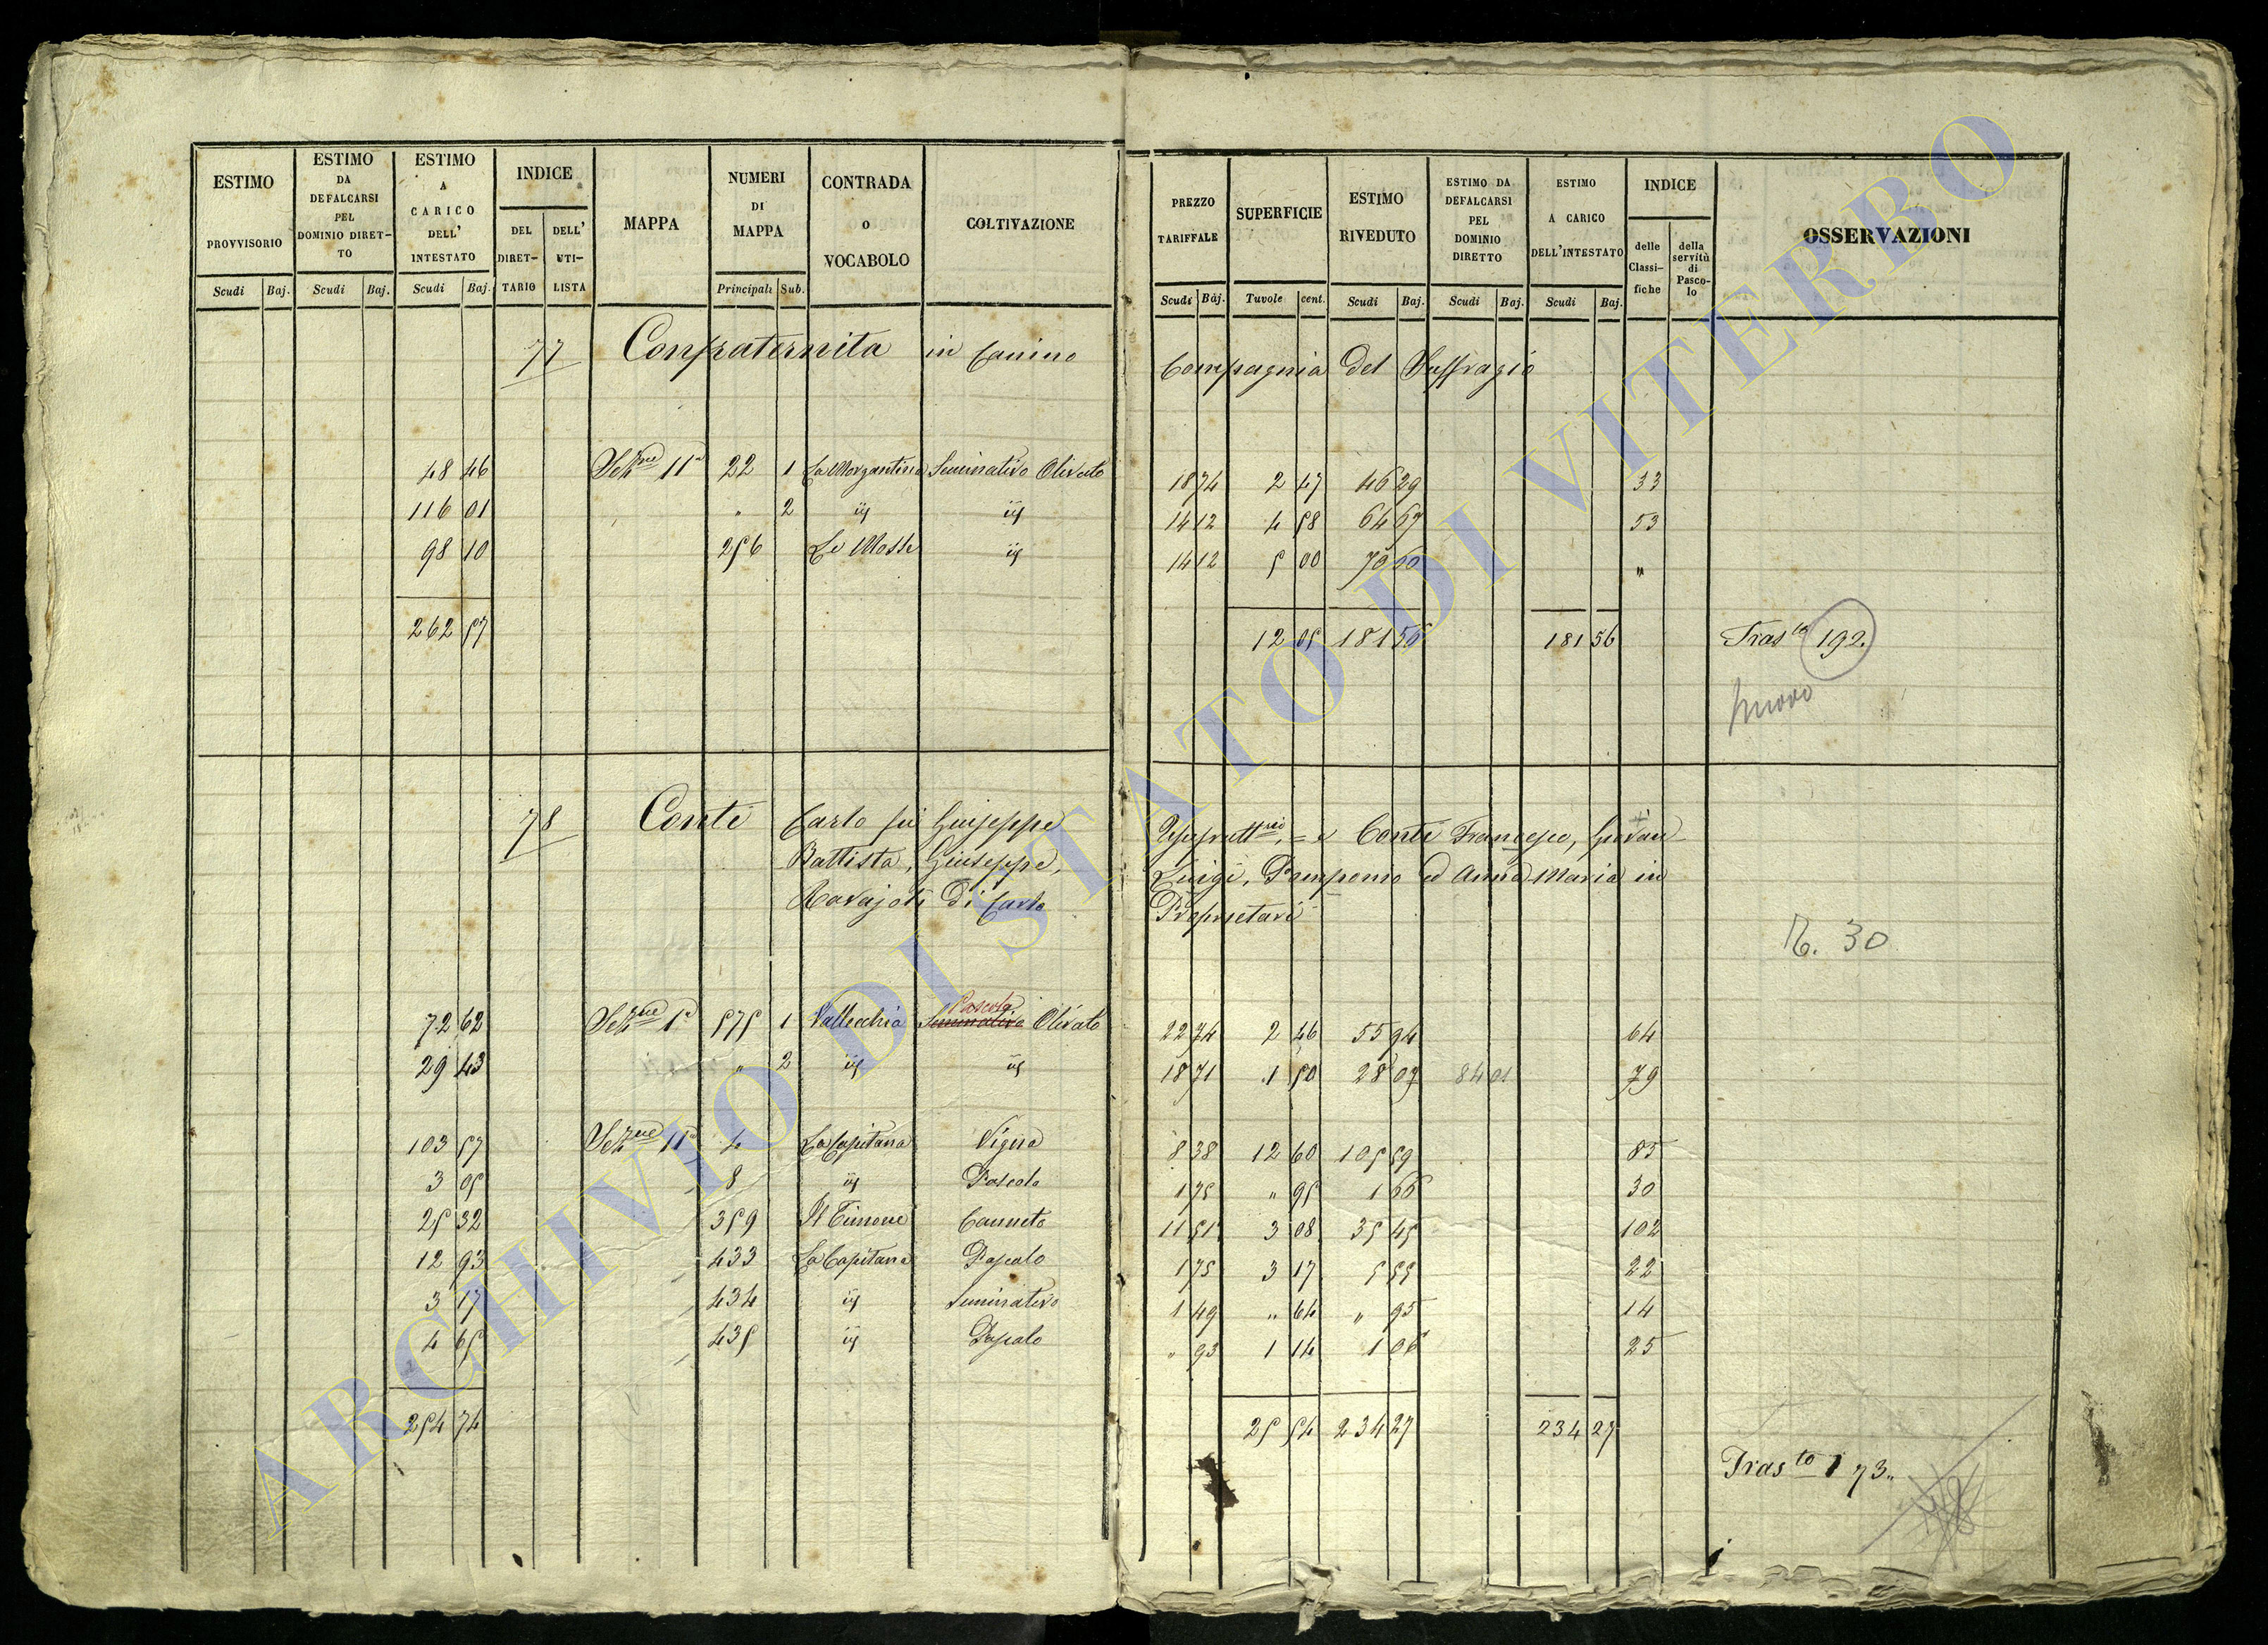 ESTIMO PROVVISORIO Scudi Baj.
ESTIMO DA DEFALCARSI PEL DOMINIO DIRET-TO Scudi Baj.
ESTIMO A CARICO DELL' INTESTATO Scudi Baj.
INDICE DEL DIRET-TARIO DELL' UTI-LISTA
MAPPA
NUMERI DI MAPPA Principali Sub.
CONTRADA o VOCABOLO
COLTIVAZIONE
PREZZO TARIFFALE Scudi Baj.
SUPERFICIE Tavole cent.
ESTIMO RIVEDUTO Scudi Baj.
ESTIMO DA DEFALCARSI PEL DOMINIO DIRETTO Scudi Baj.
ESTIMO A CARICO DELL'INTESTATO Scudi Baj.
INDICE delle Classi-fiche della servitù di Pasco-lo
OSSERVAZIONI
77 Confraternita in Canino Compagnia del Suffragio
48 46 Sezne 11a 22 1 La Morgantina Seminativo Olivato 18 74 2 47 46 29 33
116 01 " 2 iij iij 14 12 4 58 64 67 53
98 10 256 Le Mosse iij 14 12 5 00 70 60 "
262 57 12 05 181 56 181 56 Trasto 192.
nuovo
78 Conti Carlo fu Giuseppe Usufruttrio = e Conti Francesco, Giovan
Battista, Giuseppe, Luigi, Pomponio ed Anna Maria in
Ravajoti di Carlo Proprietari
R. 30
Pascolo
72 62 Sezne 1a 575 1 Vallecchia Seminativo Olivato 22 74 2 46 55 94 64
29 43 " 2 iij iij 18 71 1 50 28 07 84 01 79
103 57 Sezne 11a 4 La Capitana Vigna 8 38 12 60 105 59 85
3 05 8 iij Pascolo 1 75 " 95 1 66 30
25 32 359 Il Timone Canneto 11 51 3 08 35 45 102
12 93 433 La Capitana Pascolo 1 75 3 17 5 55 22
3 17 434 iij Seminativo 1 49 " 64 " 95 14
4 65 435 iij Pascolo " 93 1 14 1 06 25
254 74 25 54 234 27 234 27
Trasto 173.
ARCHIVIO DI STATO DI VITERBO